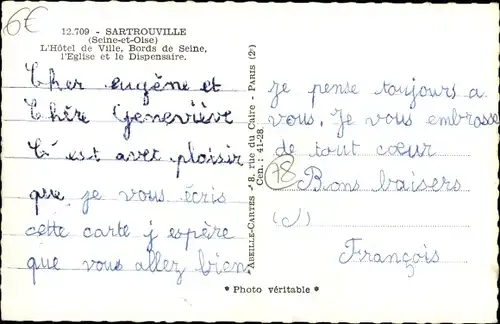 6€
12.709 - SARTROUVILLE
(Seine-et-Oise)
L'Hôtel de Ville, Bords de Seine,
l'Eglise et le Dispensaire.
Cher eugène et
Chère Geneviève
C'est avec plaisir
que je vous écris
cette carte j espère
que vous allez bien
ABEILLE-CARTES - 8, rue du Caire - PARIS (2e)
Cen. : 41-28
78
je pense toujours a
vous. Je vous embrasse
de tout cœur
Bons baisers
(J)
François
* Photo véritable *